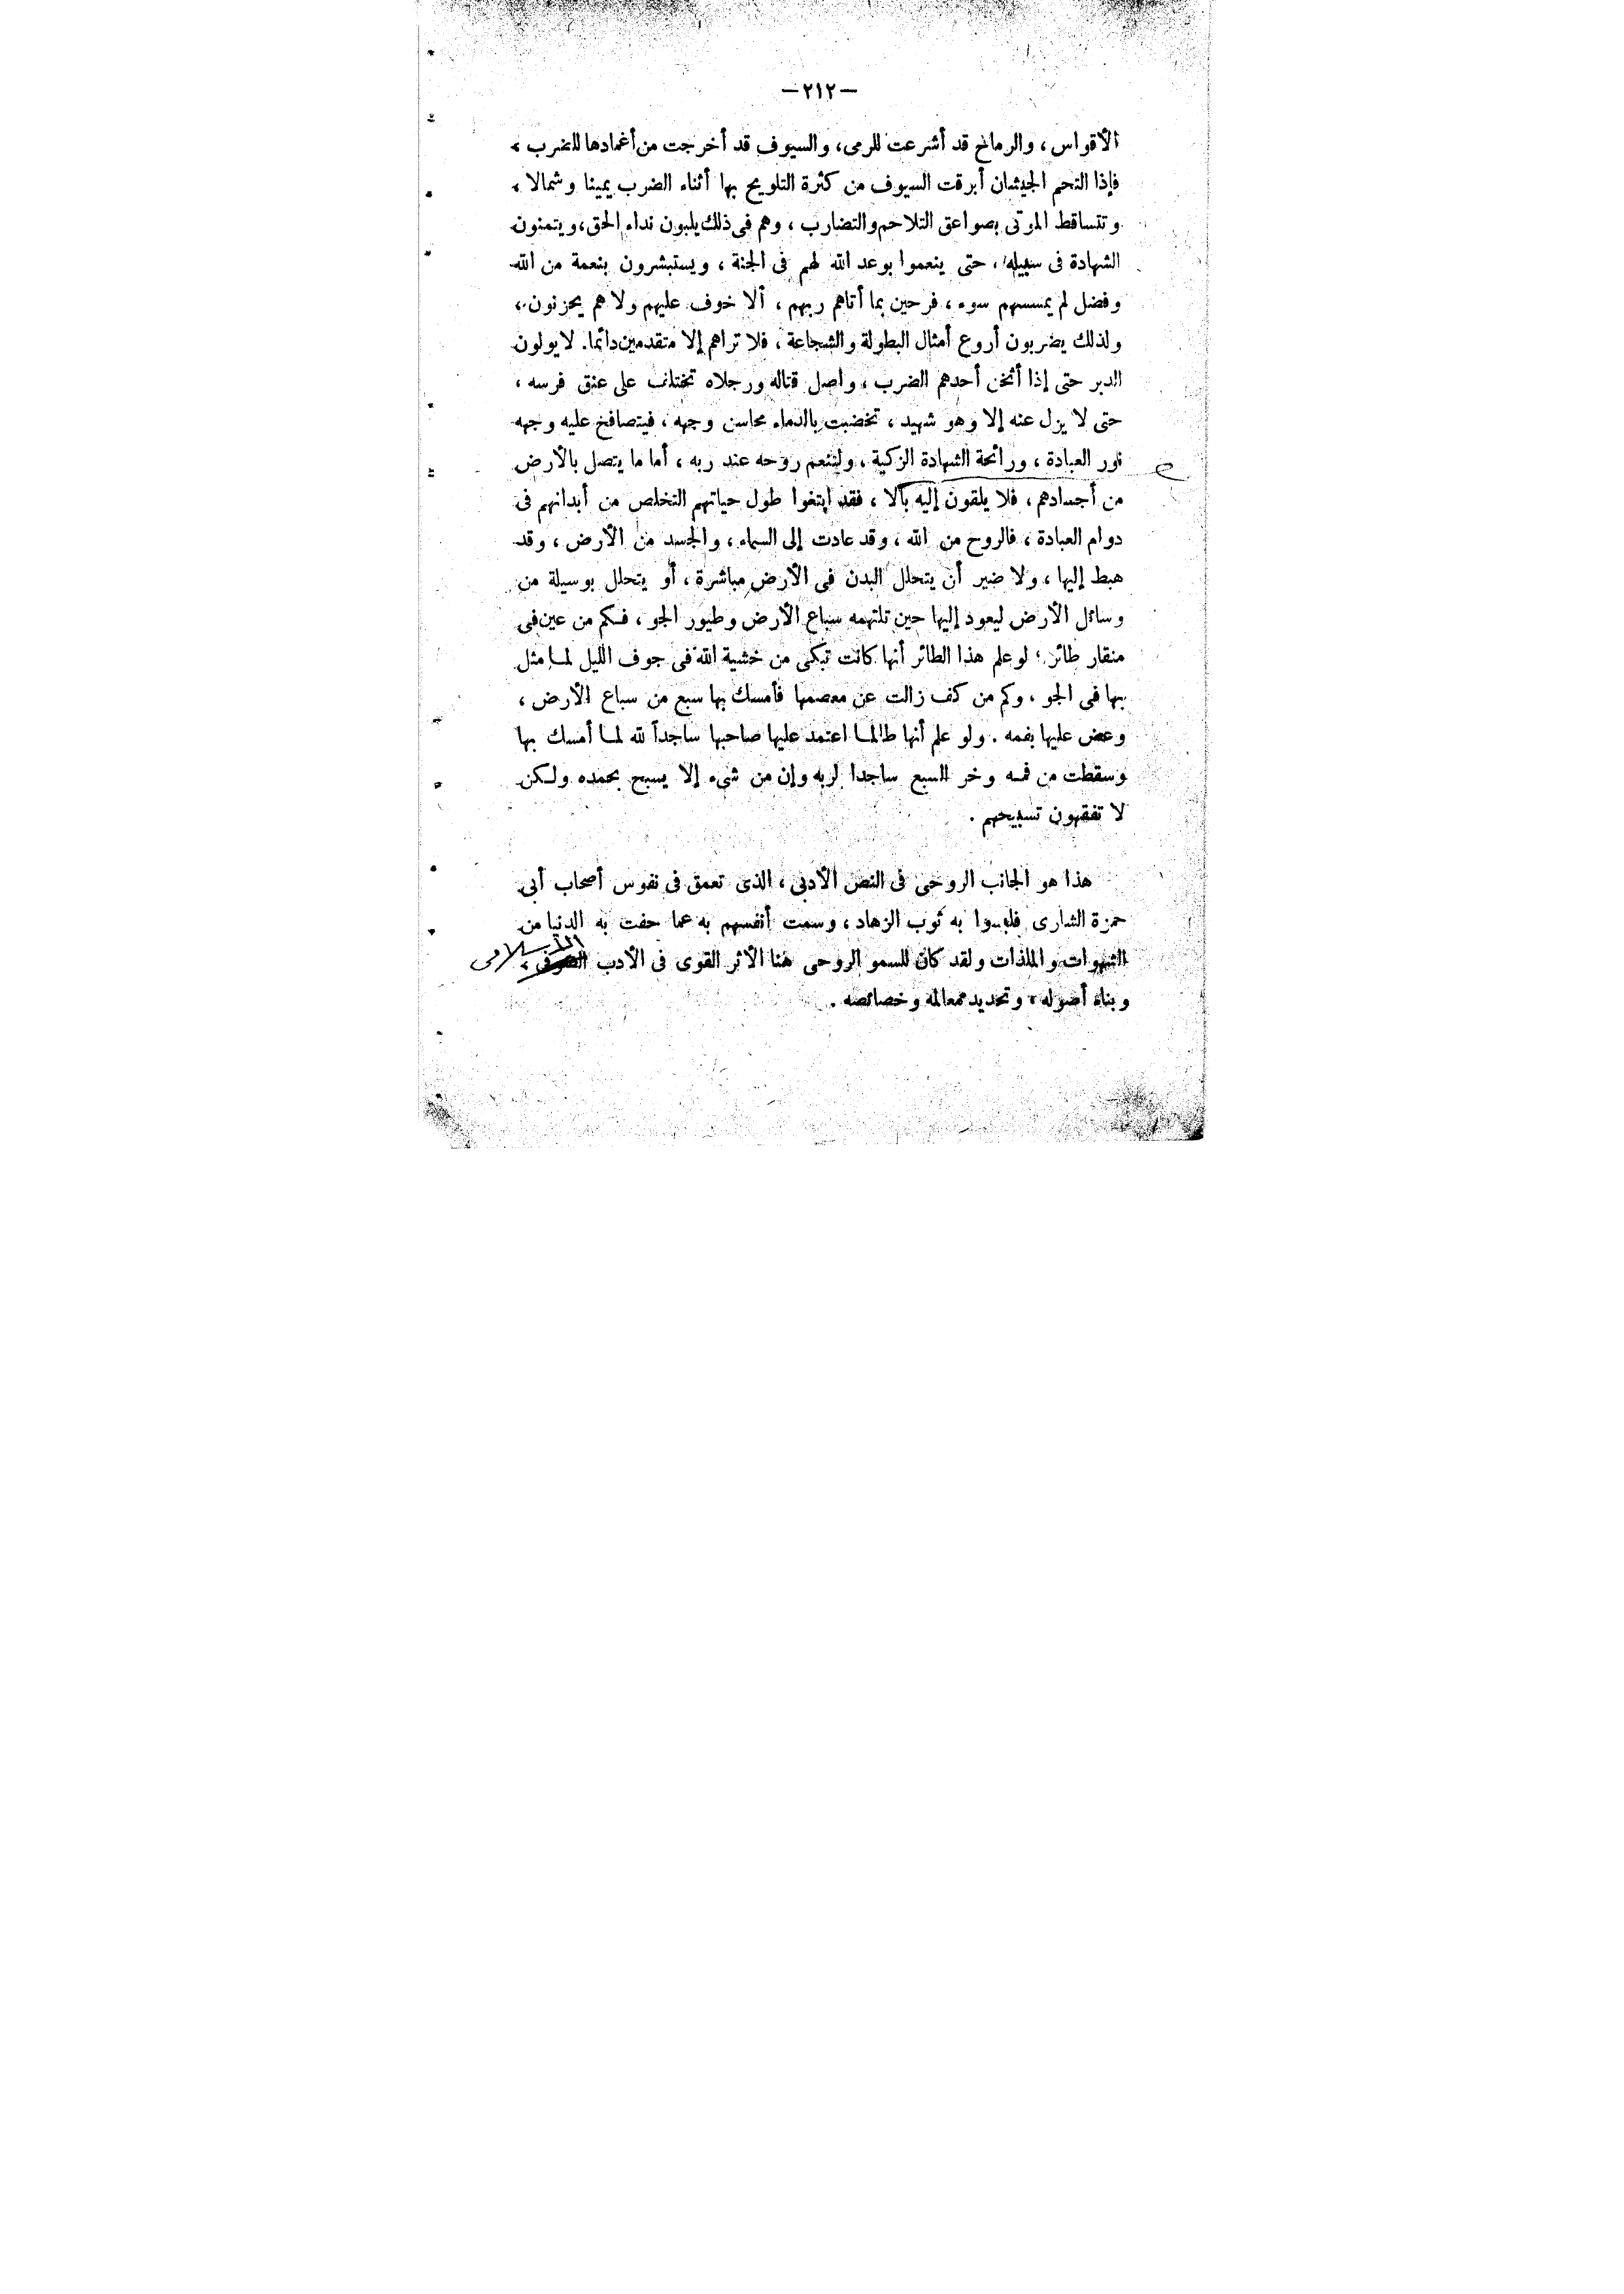 —٢١٢—
الأقواس ، والرماح قد أشرعت للرمى، والسيوف قد أخرجت من أغمادها للضرب ،
فإذا التحم الجيشان أبرقت السيوف من كثرة التلويح بها أثناء الضرب يمينا وشمالا ،
وتتساقط الموتى بصواعق التلاحم والتضارب ، وهم فى ذلك يلبون نداء الحق، ويتمنون
الشهادة فى سبيله ، حتى ينعموا بوعد الله لهم فى الجنة ، ويستبشرون بنعمة من الله
وفضل لم يمسسهم سوء ، فرحين بما أتاهم ربهم ، ألا خوف عليهم ولا هم يحزنون ،
ولذلك يضربون أروع أمثال البطولة والشجاعة ، فلا تراهم إلا متقدمين دائما. لا يولون
الدبر حتى إذا أثخن أحدهم الضرب ، واصل قتاله ورجلاه تختلف على عنق فرسه ،
حتى لا يزل عنه إلا وهو شهيد ، تخضبت بالدماء محاسن وجهه ، فيتصافح عليه وجهه
نور العبادة ، ورائحة الشهادة الزكية ، ولتنعم روحه عند ربه ، أما ما يتصل بالأرض
من أجسادهم ، فلا يلقون إليه بالا ، فقد ابتغوا طول حياتهم التخلص من أبدانهم فى
دوام العبادة ، فالروح من الله ، وقد عادت إلى السماء ، والجسد من الأرض ، وقد
هبط إليها ، ولا ضير أن يتحلل البدن فى الأرض مباشرة ، أو يتحلل بوسيلة من
وسائل الأرض ليعود إليها حين تلتهمه سباع الأرض وطيور الجو ، فكم من عين فى
منقار طائر ؛ لو علم هذا الطائر أنها كانت تبكى من خشية الله فى جوف الليل لما مثل
بها فى الجو ، وكم من كف زالت عن معصمها فأمسك بها سبع من سباع الأرض ،
وعض عليها بفمه . ولو علم أنها طالما اعتمد عليها صاحبها ساجداً لله لما أمسك بها
وسقطت من فمه وخر السبع ساجدا لربه وإن من شىء إلا يسبح بحمده ولكن
لا تفقهون تسبيحهم .
هذا هو الجانب الروحى فى النص الأدبى ، الذى تعمق فى نفوس أصحاب أبى
حمزة الشارى فلبسوا به ثوب الزهاد ، وسمت أنفسهم به عما حفت به الدنيا من
الشهوات والملذات ولقد كان للسمو الروحى هنا الأثر القوى فى الأدب الصوفى ، الإسلامى
وبناء أصوله ، وتحديد معالمه وخصائصه .